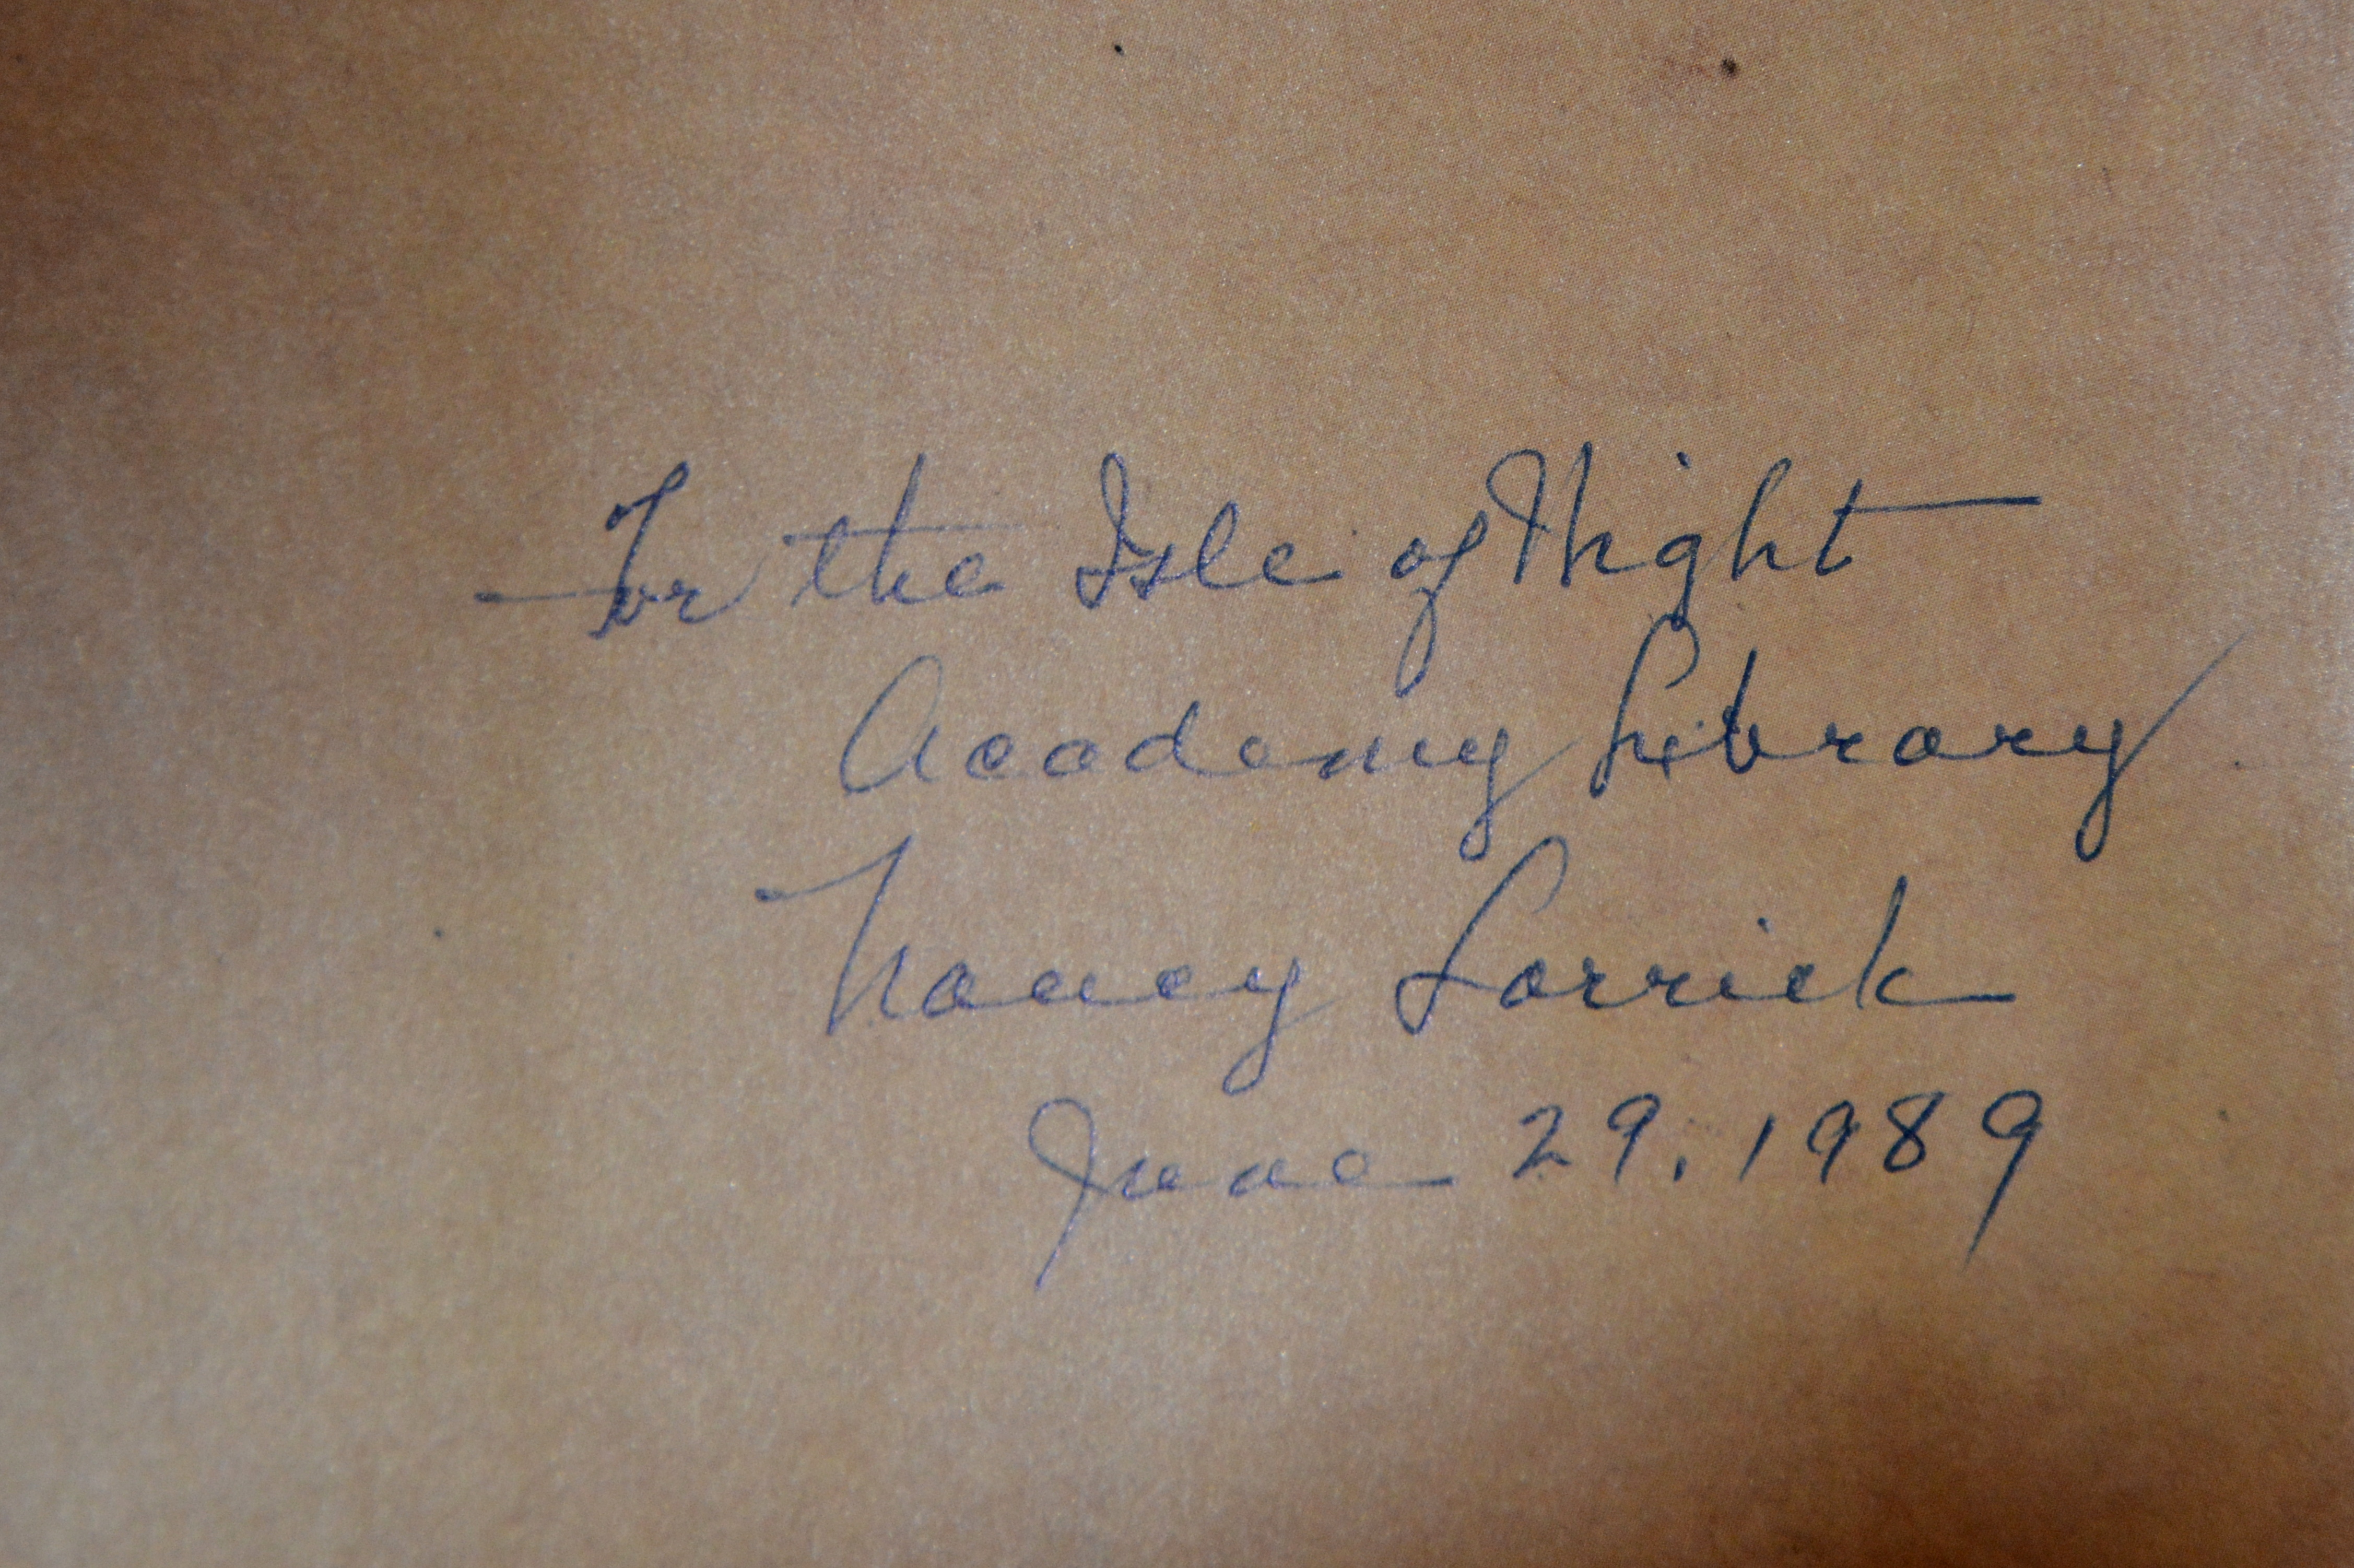 For the Isle of Wight
Academy Library
Nancy Larrick
June 29, 1989